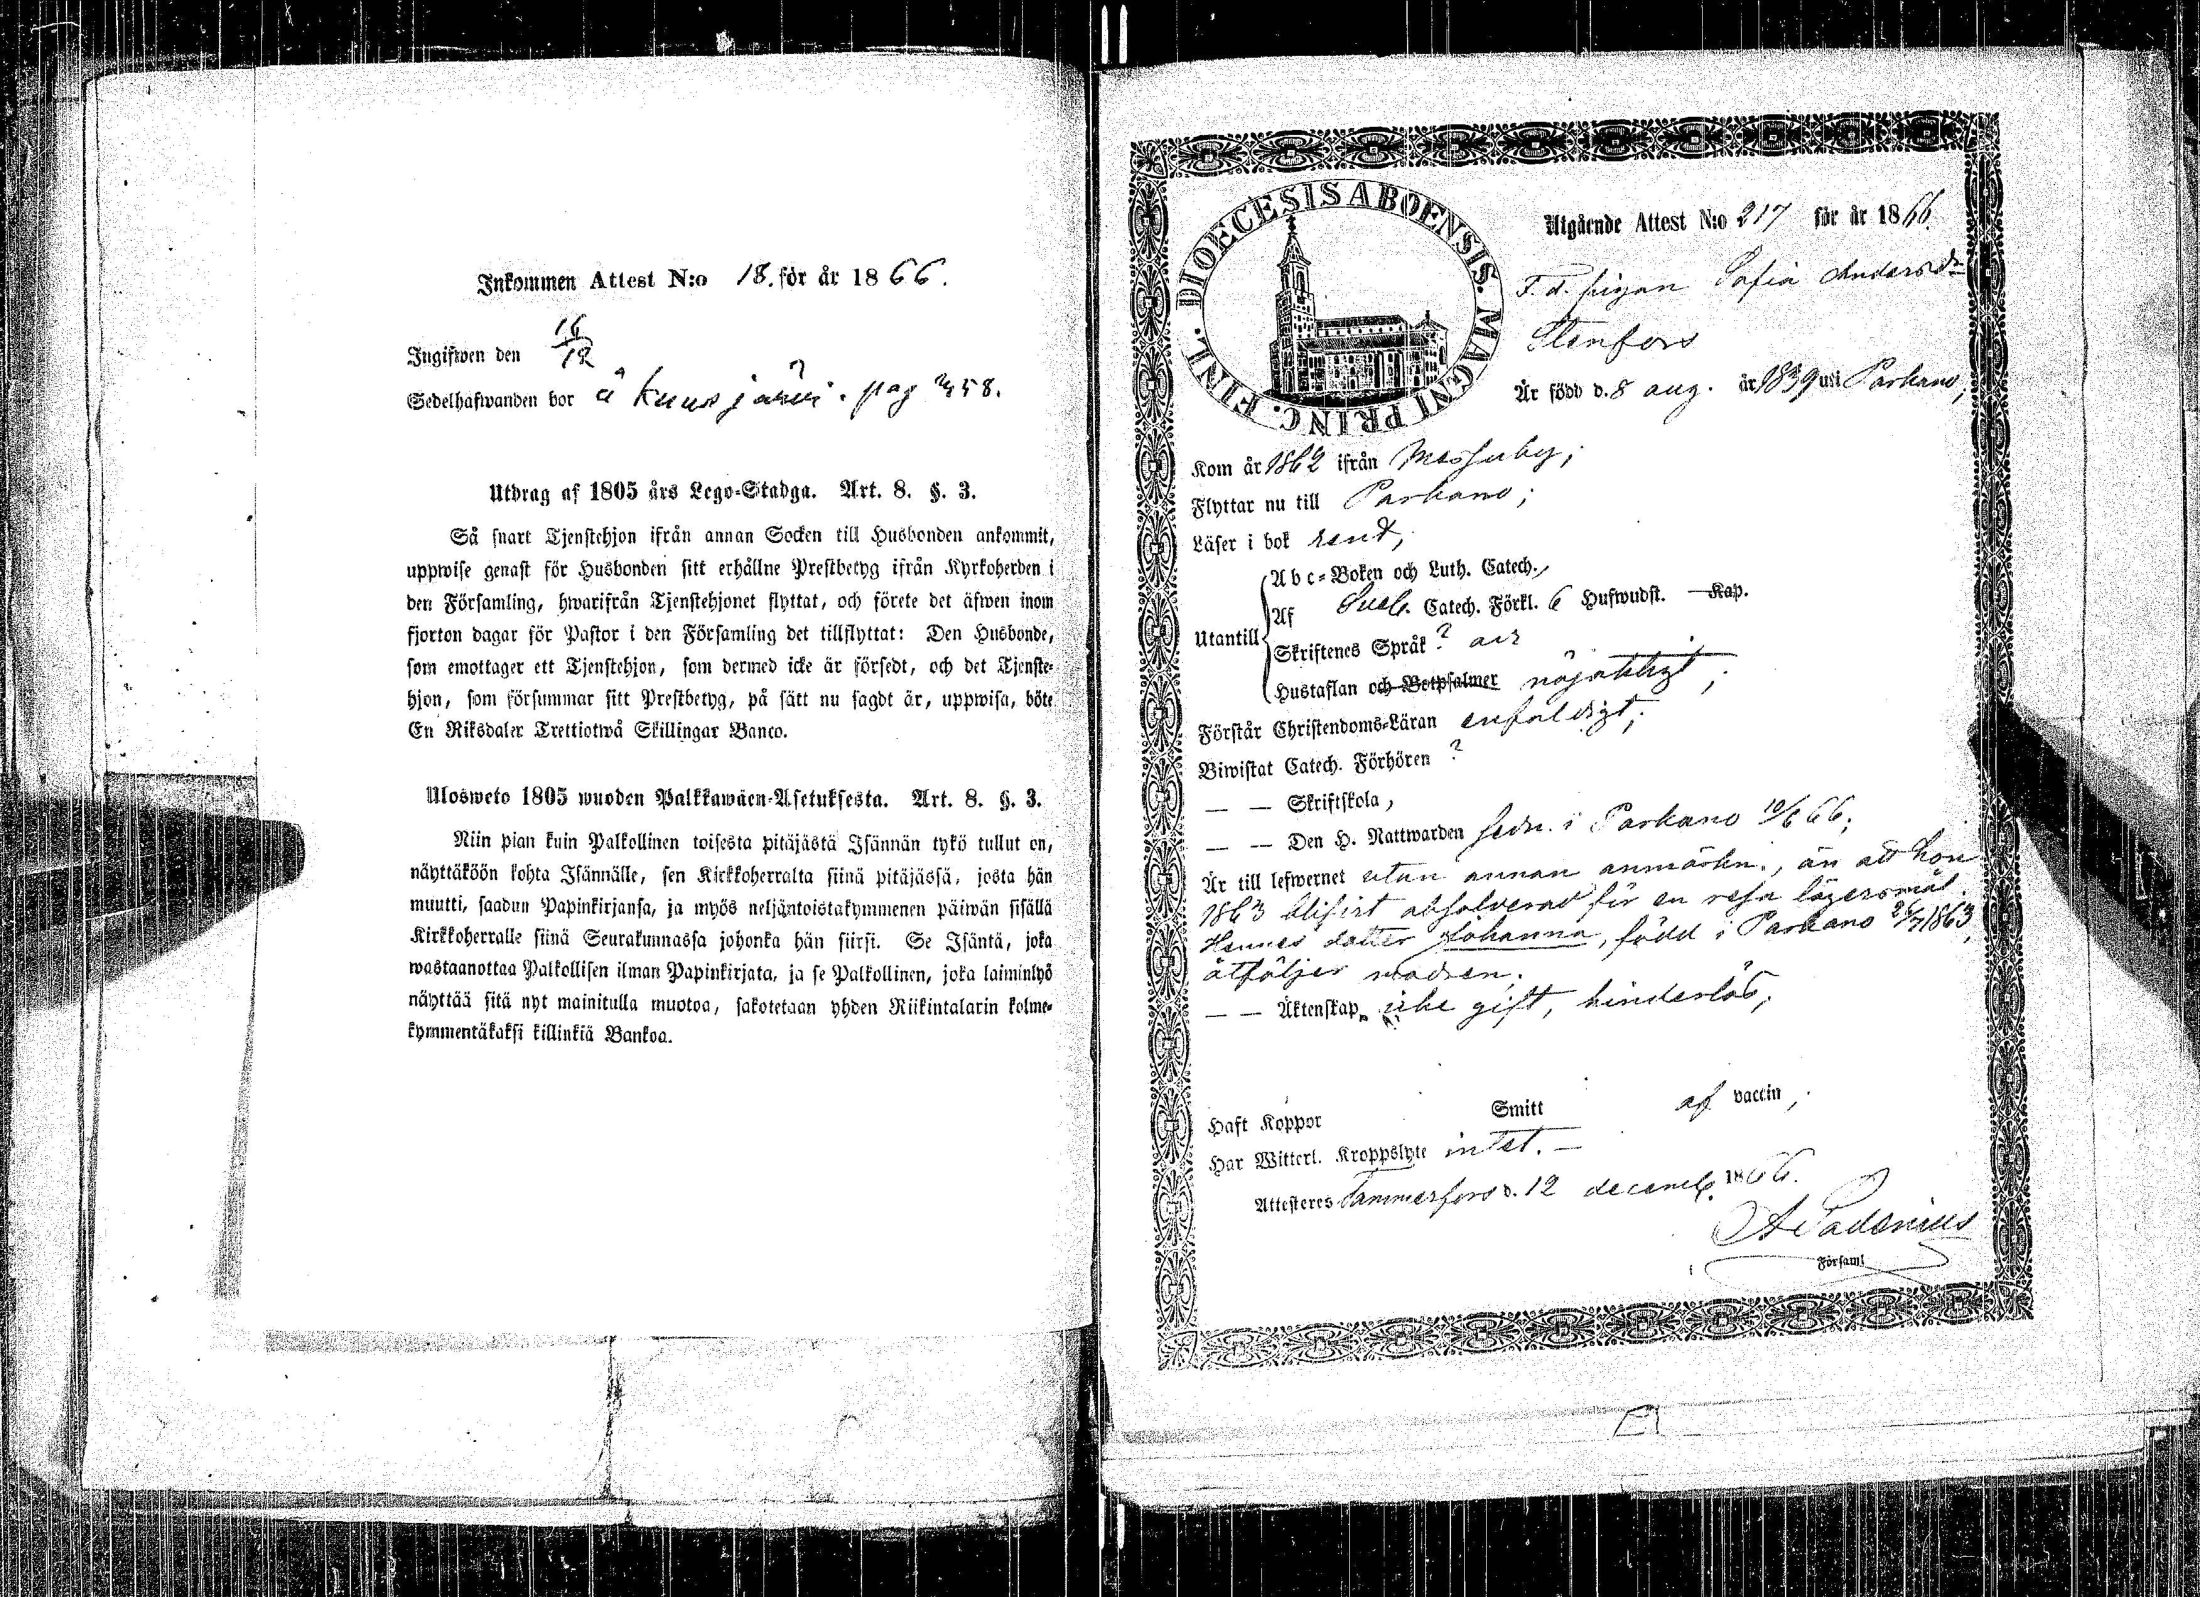 Inkommen Attest N:o 18. för år 1866.
Ingifwen den 16/12
Sedelhafwanden bor å Kuusjärvi. pag 358.
Utdrag af 1805 års Lego-Stadga. Art. 8. §. 3.
Så snart Tjenstehjon ifrån annan Socken till Husbonden ankommit,
uppwise genast för Husbonden sitt erhållne Prestbetyg ifrån Kyrkoherden i
den Församling, hwarifrån Tjenstehjonet flyttat, och förete det äfwen inom
fjorton dagar för Pastor i den Församling det tillflyttat: Den Husbonde,
som emottager ett Tjenstehjon, som dermed icke är försedt, och det Tjenste-
hjon, som försummar sitt Prestbetyg, på sätt nu sagdt är, uppwisa, böte
En Riksdaler Trettiotwå Skillingar Banco.
Ulosweto 1805 wuoden Palkkawäen-Asetuksesta. Art. 8. §. 3.
Niin pian kuin Palkollinen toisesta pitäjästä Isännän tykö tullut on,
näyttäköön kohta Isännälle, sen Kirkkoherralta siinä pitäjässä, josta hän
muutti, saadun Papinkirjansa, ja myös neljäntoistakymmenen päiwän sisällä
Kirkkoherralle siinä Seurakunnassa johonka hän siirsi. Se Isäntä, joka
wastaanottaa Palkollisen ilman Papinkirjata, ja se Palkollinen, joka laiminlyö
näyttää sitä nyt mainitulla muotoa, sakotetaan yhden Riikintalarin kolme-
kymmentäkaksi killinkiä Bankoa.
DIOECESIS ABOENSIS. MAGNI PRINC. FINL.
Utgående Attest N:o 217 för år 1866.
F. d. pigan Sofia Andersdr
Stenfors
Är född d. 8 aug. år 1839 uti Parkano;
Kom år 1862 ifrån Messuby;
Flyttar nu till Parkano;
Läser i bok rent,
Utantill
Abc-Boken och Luth. Catech.,
Af Sveb. Catech. Förkl. 6 Hufwudst. — Kap.
Skriftenes Språk ?
Hustaflan och Botpsalmer nöjaktigt;
Förstår Christendoms-Läran enfaldigt;
Biwistat Catech. Förhören ?
— — Skriftskola,
— — Den H. Nattwarden sedn. i Parkano 10/6 66;
Är till lefwernet utan annan anmärkn., än att hon
1863 blifvit absolverad för en resa lägersmål.
Hennes dotter Johanna, född i Parkano 26/7 1863,
åtföljer modren;
— — Äktenskap icke gift, hinderlös;
Haft Koppor Smitt af vaccin,
Har Witterl. Kroppslyte intet. —
Attesteres Tammerfors d. 12 decemb. 1866.
Församl